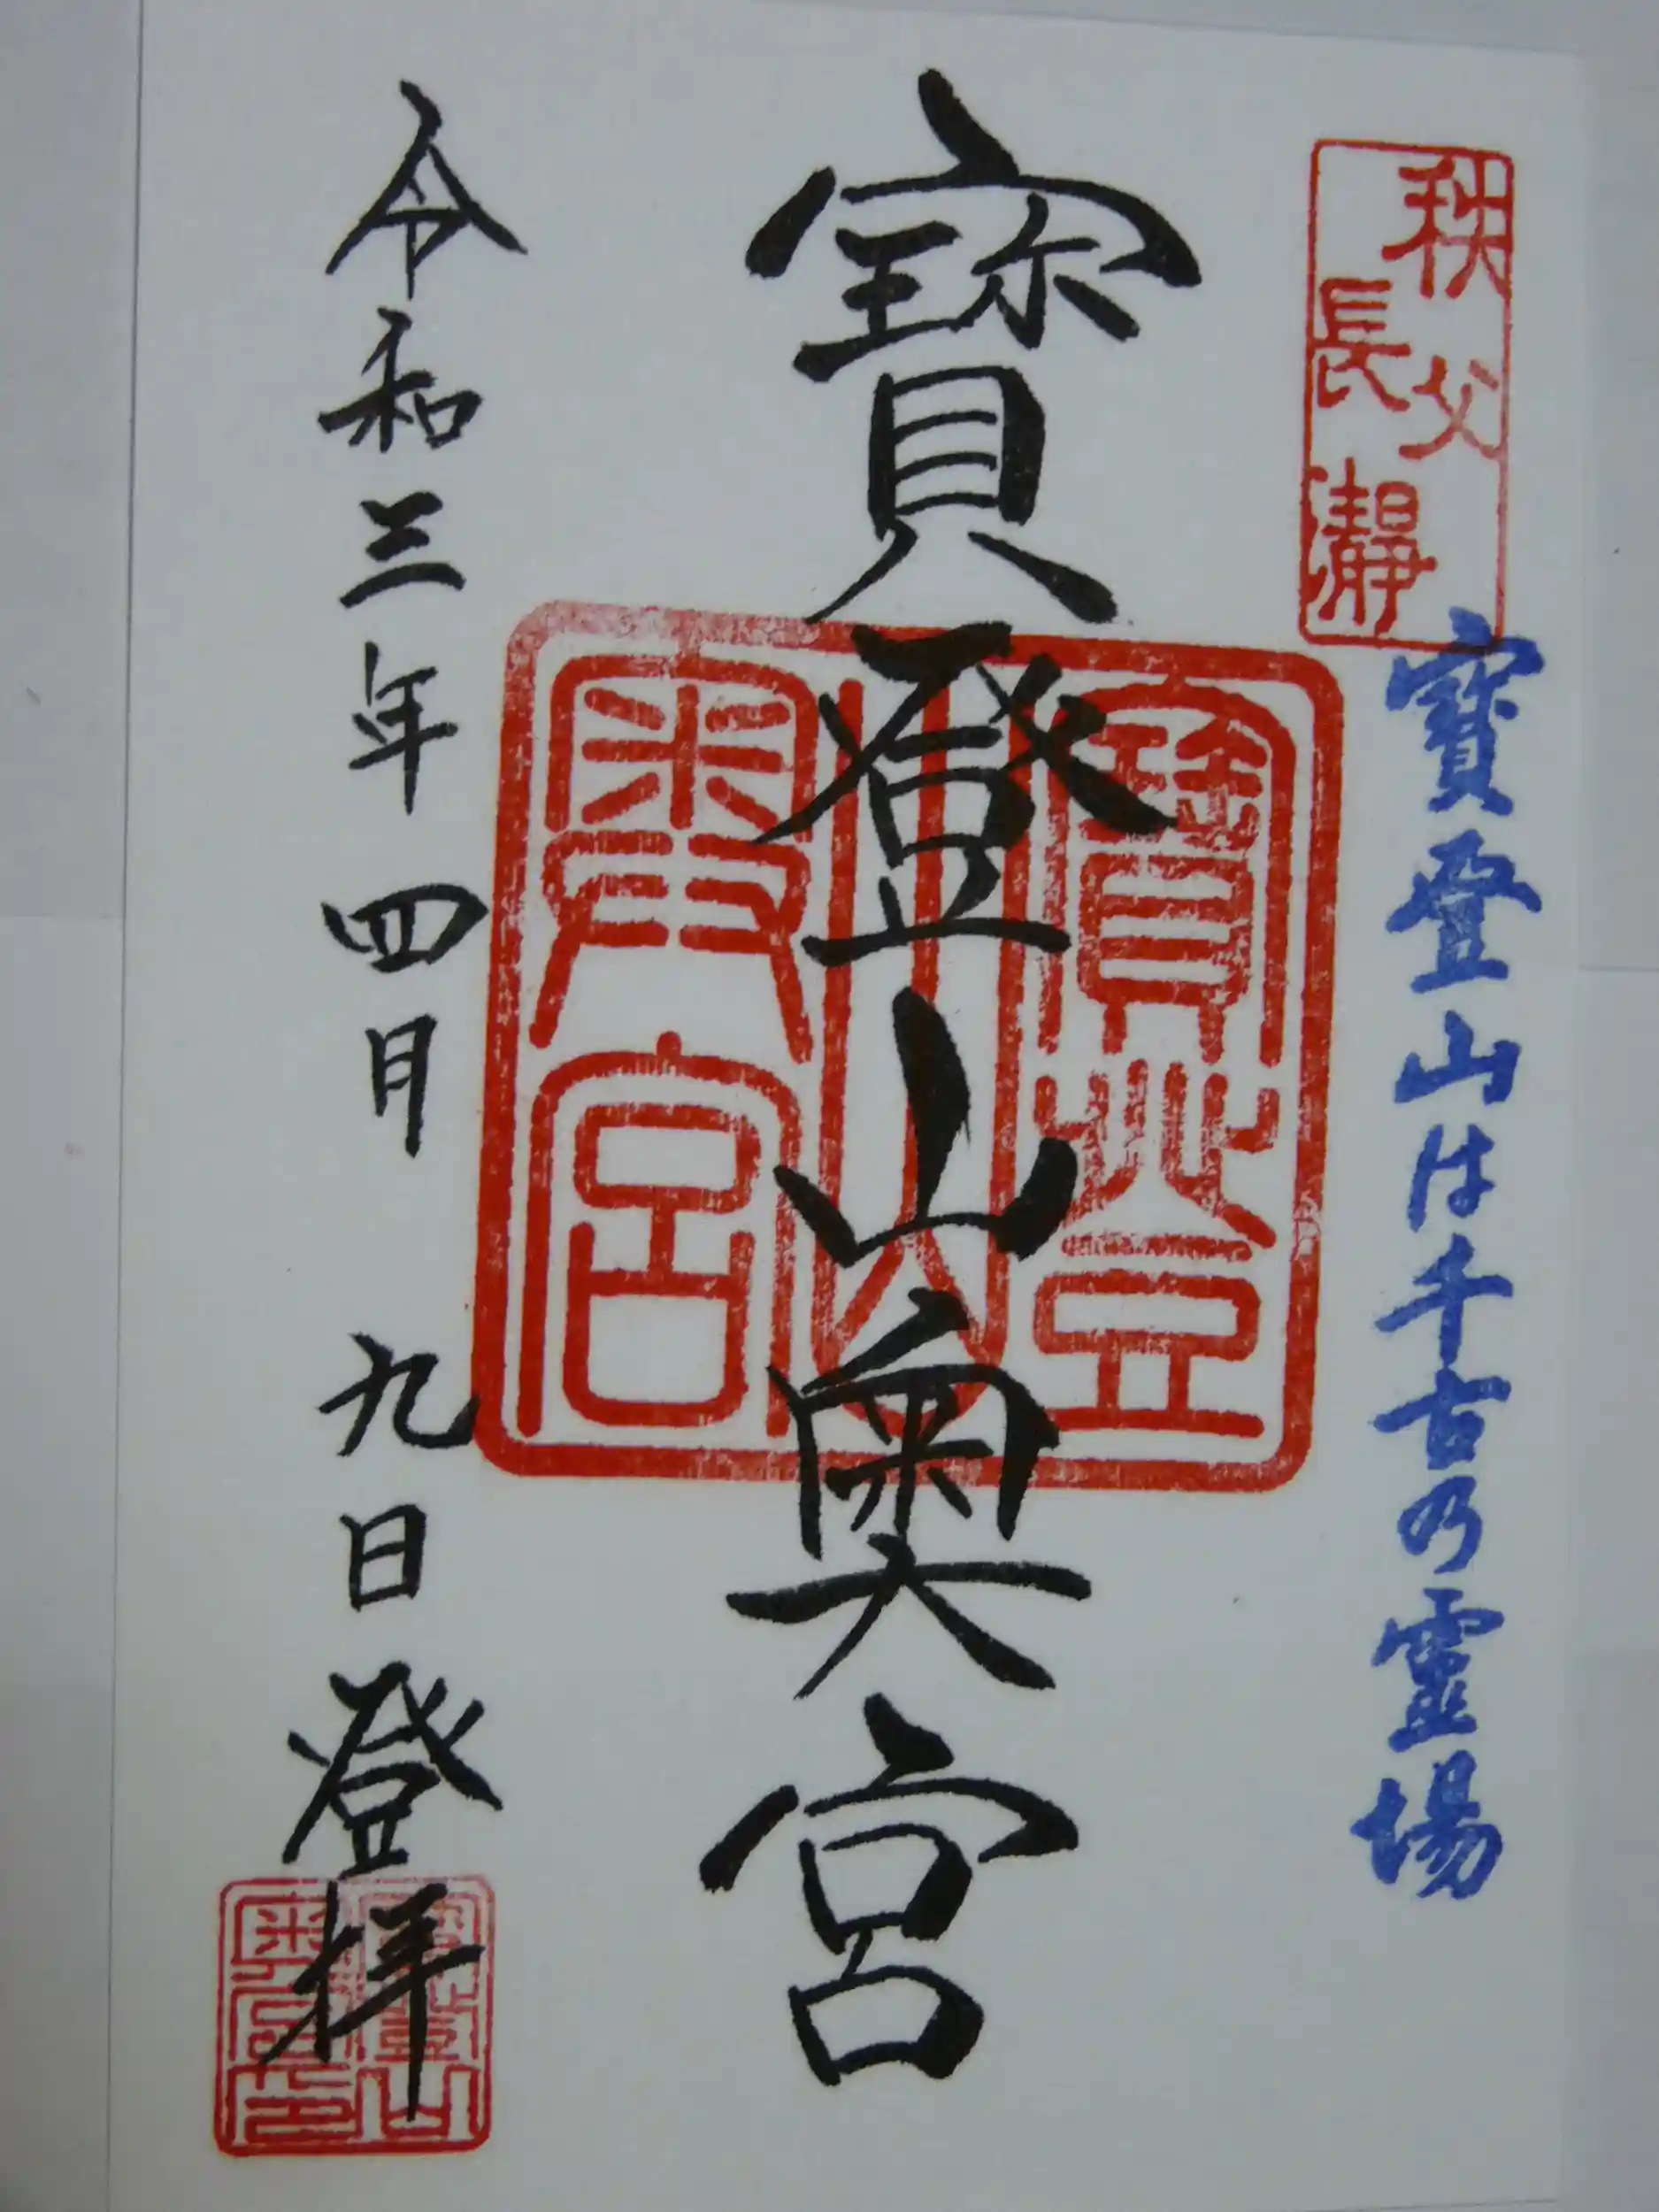 秩父
長瀞
寳登山は千古乃霊場
寳登山奥宮
寳登
山
奥宮
令和三年四月九日登拝
寳登山
奥宮印